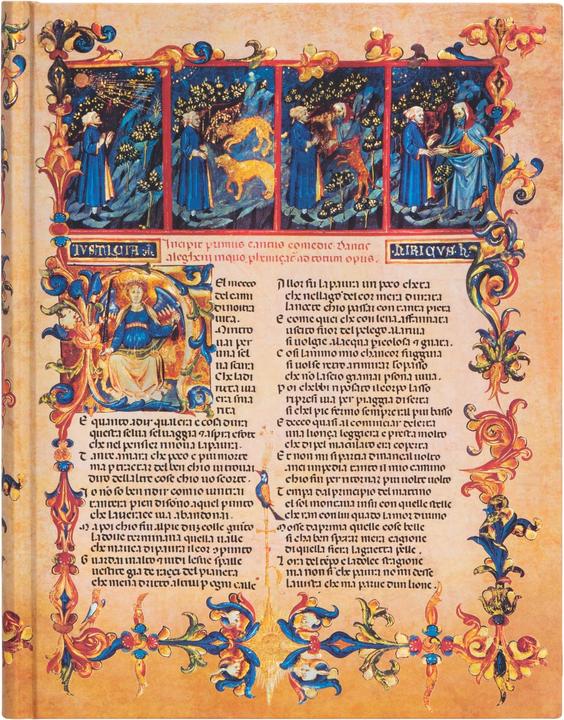 IUSTICIA
Incipit primus cantus comedie dantis
alegherij in quo
ad totum opus.
El mecco
del cami
di nostra
uita.
Mi ritro
uai per
una sel
ua scura
Che la di
ricta uia
era sma
rita
E quanto a dir qual era e cosa dura
questa selua seluaggia 7 aspra e forte
che nel pensier rinoua la paura.
T ante amara che poco e piu morte
ma per tractar del ben chio ui trouai
diro dellaltre cose chio uo scorte.
I o no so ben ridir comio uintrai
tantera pien di sono a quel puncto
che la uerace uia abandonai.
M a poi chio fui al pie
colle giunto
la doue terminaua quella ualle
che mauea di paura il cor 9puncto
G uardai in alto 7 uidi le sue spalle
uestite gia de raggi del pianeta
che mena dricto altrui p ogni calle
A llor fu la paura un poco cheta
che nel lago del cor mera durata
la nocte chio passai con tanta pieta
E come quei che con lena affannata
uscito fuor del pelago a la riua
si uolge a lacqua picolosa 7 guata.
C osi lanimo mio chancor fuggiua
si uolse retro a rimirar lo passo
che no lascio giamai psona uiua.
P oi chebbi riposato il corpo lasso
ripresi uia per piaggia diserta
si chel pie fermo sempre era l piu basso
E t ecco quasi al cominciar de lerta
una lonça leggiera e presta molto
che di pel maculato era coperta
E t non mi si partia dinançi al uolto
anci impedia tanto il mio camino
chio fui per ritornar piu uolte uolto
T empo era dal principio del matino
el sol montaua in su con quelle stelle
cheran con lui quado lamor diuino
M osse da prima quelle cose belle
si cha ben sperar mera cagione
di quella fiera la gaetta pelle.
L ora del tepo e la dolce stagione
ma non si che paura no mi desse
la uista che ma parue dun lione.